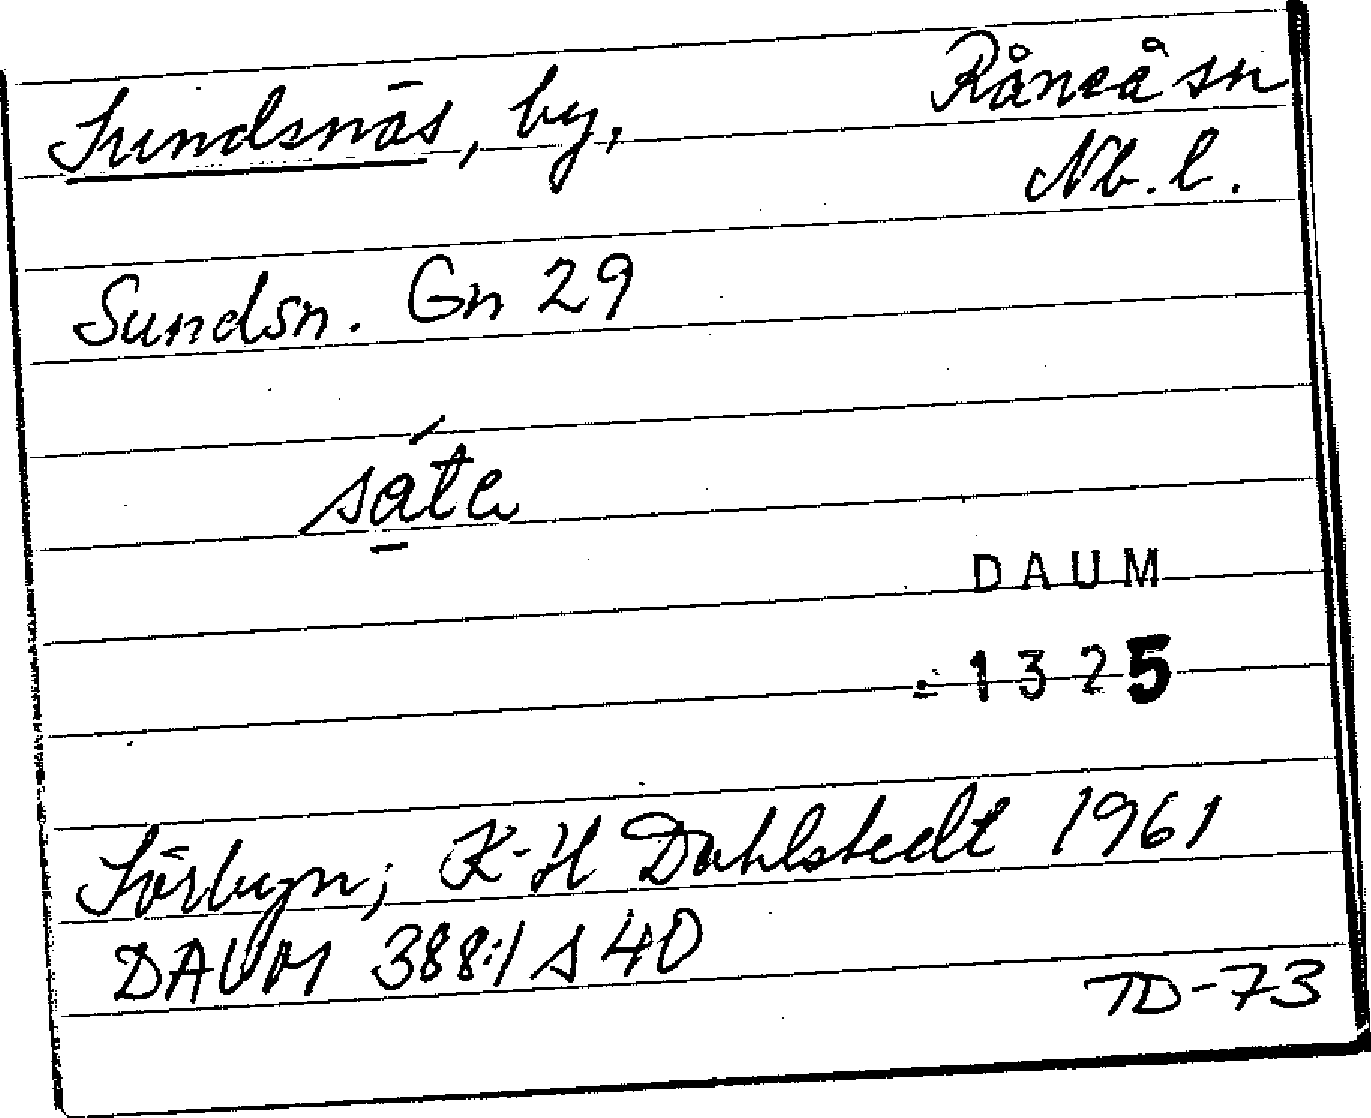 Sundsnäs, by, Råneå sn
Nb. l.
Sundsn. Gn 29
DAUM
1325
Sörbyn; K-H Dahlstedt 1961
DAUM 388:1 s 40
TD-73